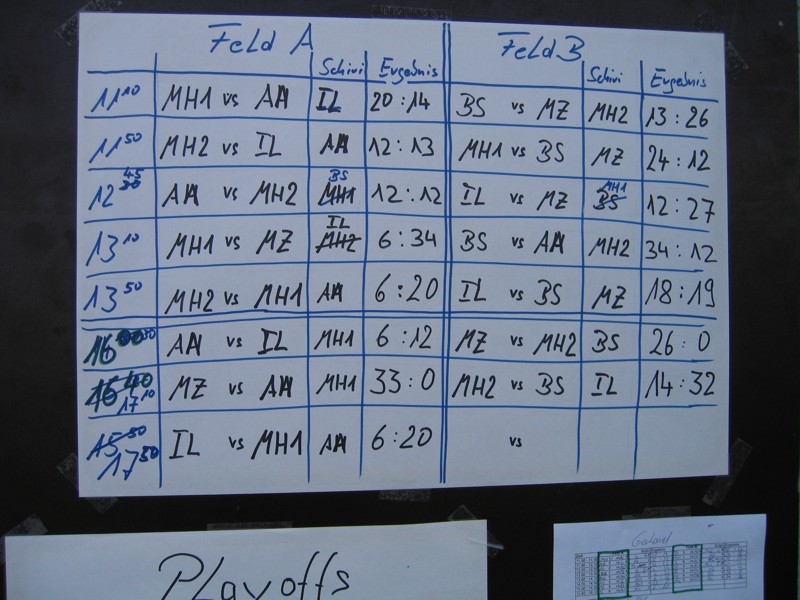 Feld A Feld B
Schiri Ergebnis Schiri Ergebnis
11 10 MH1 vs AH IL 20:14 BS vs MZ MH2 13:26
11 50 MH2 vs IL AH 12:13 MH1 vs BS MZ 24:12
45 BS MH1
12 30 AH vs MH2 MH1 12:12 IL vs MZ BS 12:27
IL
13 10 MH1 vs MZ MH2 6:34 BS vs AH MH2 34:12
13 50 MH2 vs MH1 AH 6:20 IL vs BS MZ 18:19
16 30 AH vs IL MH1 6:12 MZ vs MH2 BS 26:0
16 40 MZ vs AH MH1 33:0 MH2 vs BS IL 14:32
17 10
15 50 IL vs MH1 AH 6:20 vs
17 50
Playoffs